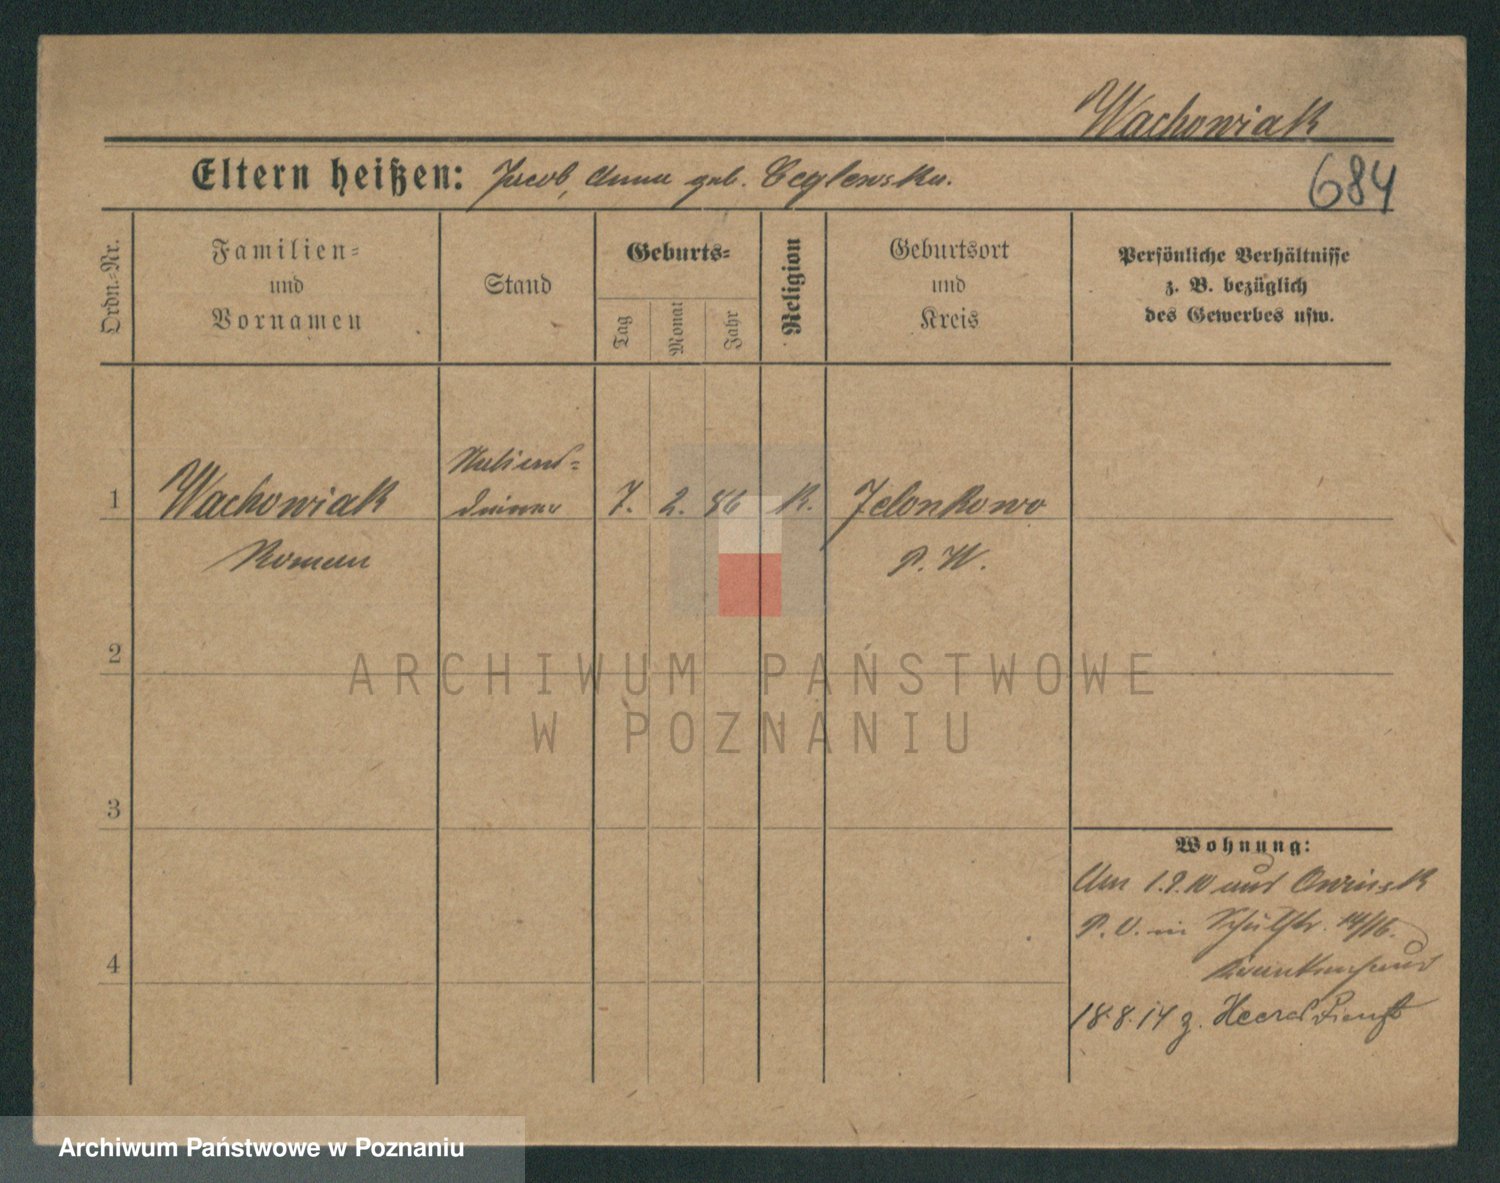 Wachowiak
Eltern heißen: Jacob, Anna geb. Ceglewska.
684
Ordn.-Nr.
Familien-
und
Vornamen
Stand
Geburts-
Tag
Monat
Jahr
Religion
Geburtsort
und
Kreis
Persönliche Verhältnisse
z. B. bezüglich
des Gewerbes usw.
1
Wachowiak
Roman
diener
7. 2. 86
K.
Jelonkowo
P. W.
2
3
4
Wohnung:
Am 1.9.10 aus Owinsk
P. O. in Schulstr. 14/16.
Krankenhaus
18.8.14 z. Heeresdienst
ARCHIWUM PAŃSTWOWE
W POZNANIU
Archiwum Państwowe w Poznaniu